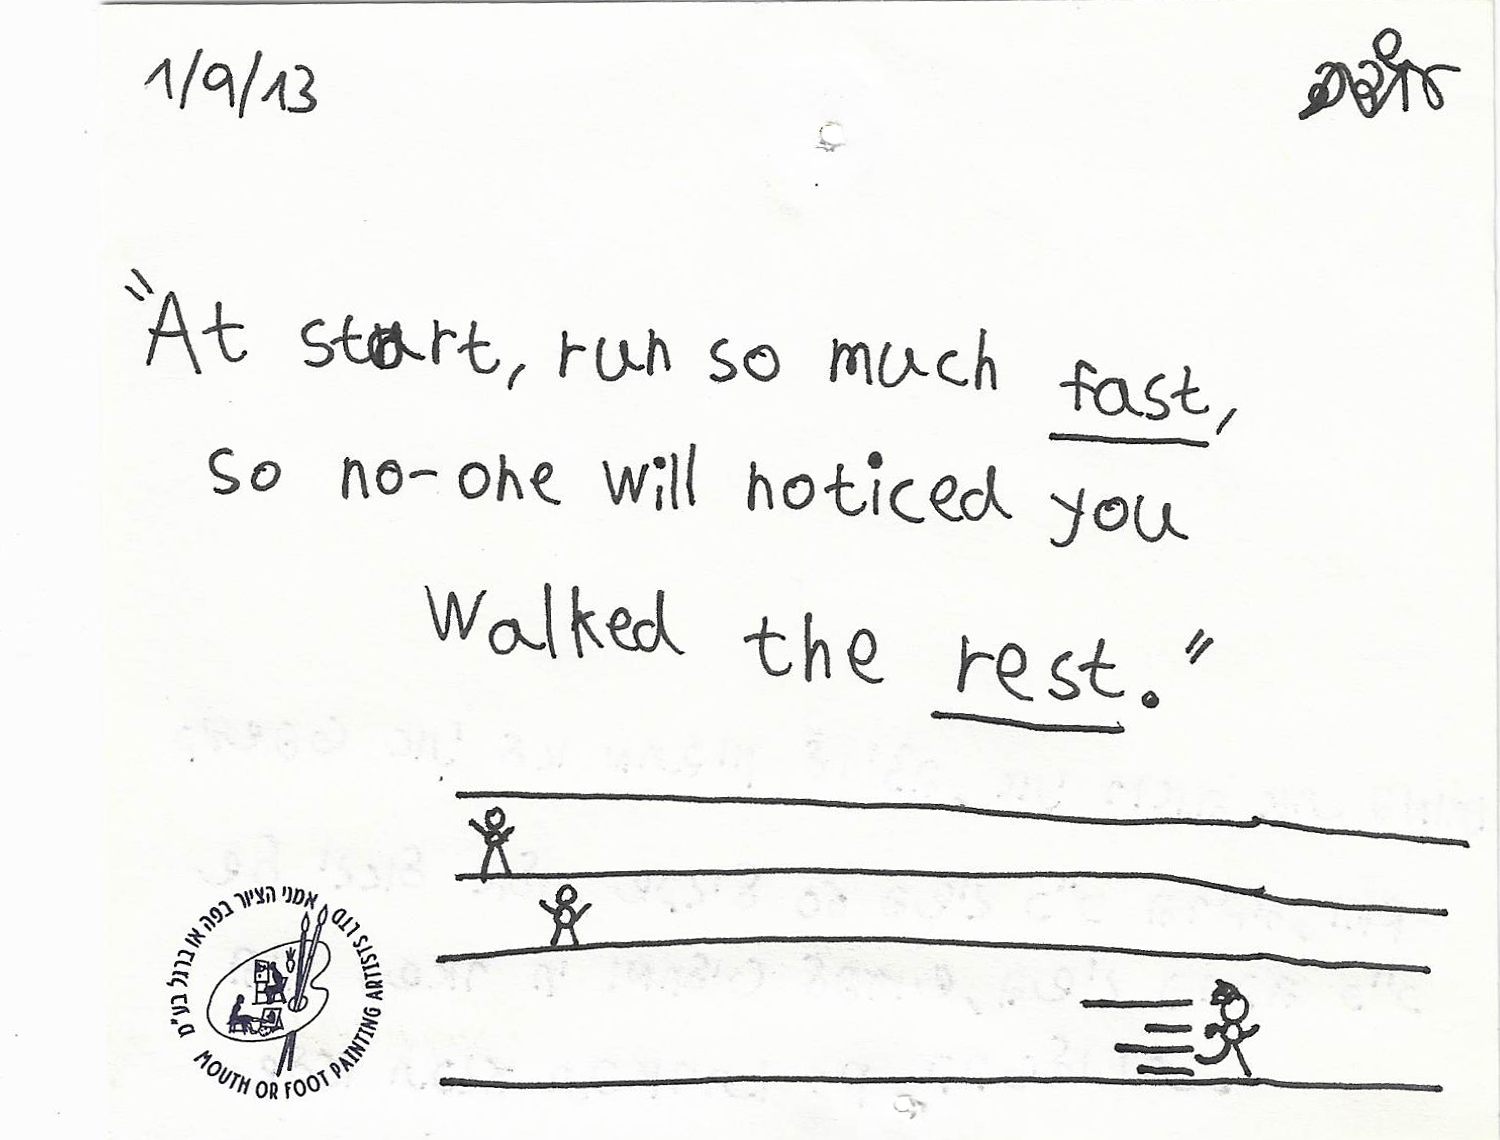 1/9/13
"At start, run so much fast,
so no-one will noticed you
Walked the rest."
אמני הציור בפה או ברגל בע"מ
MOUTH OR FOOT PAINTING ARTISTS LTD